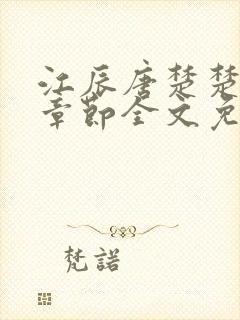 江辰唐楚楚
章节全文免
梵諾